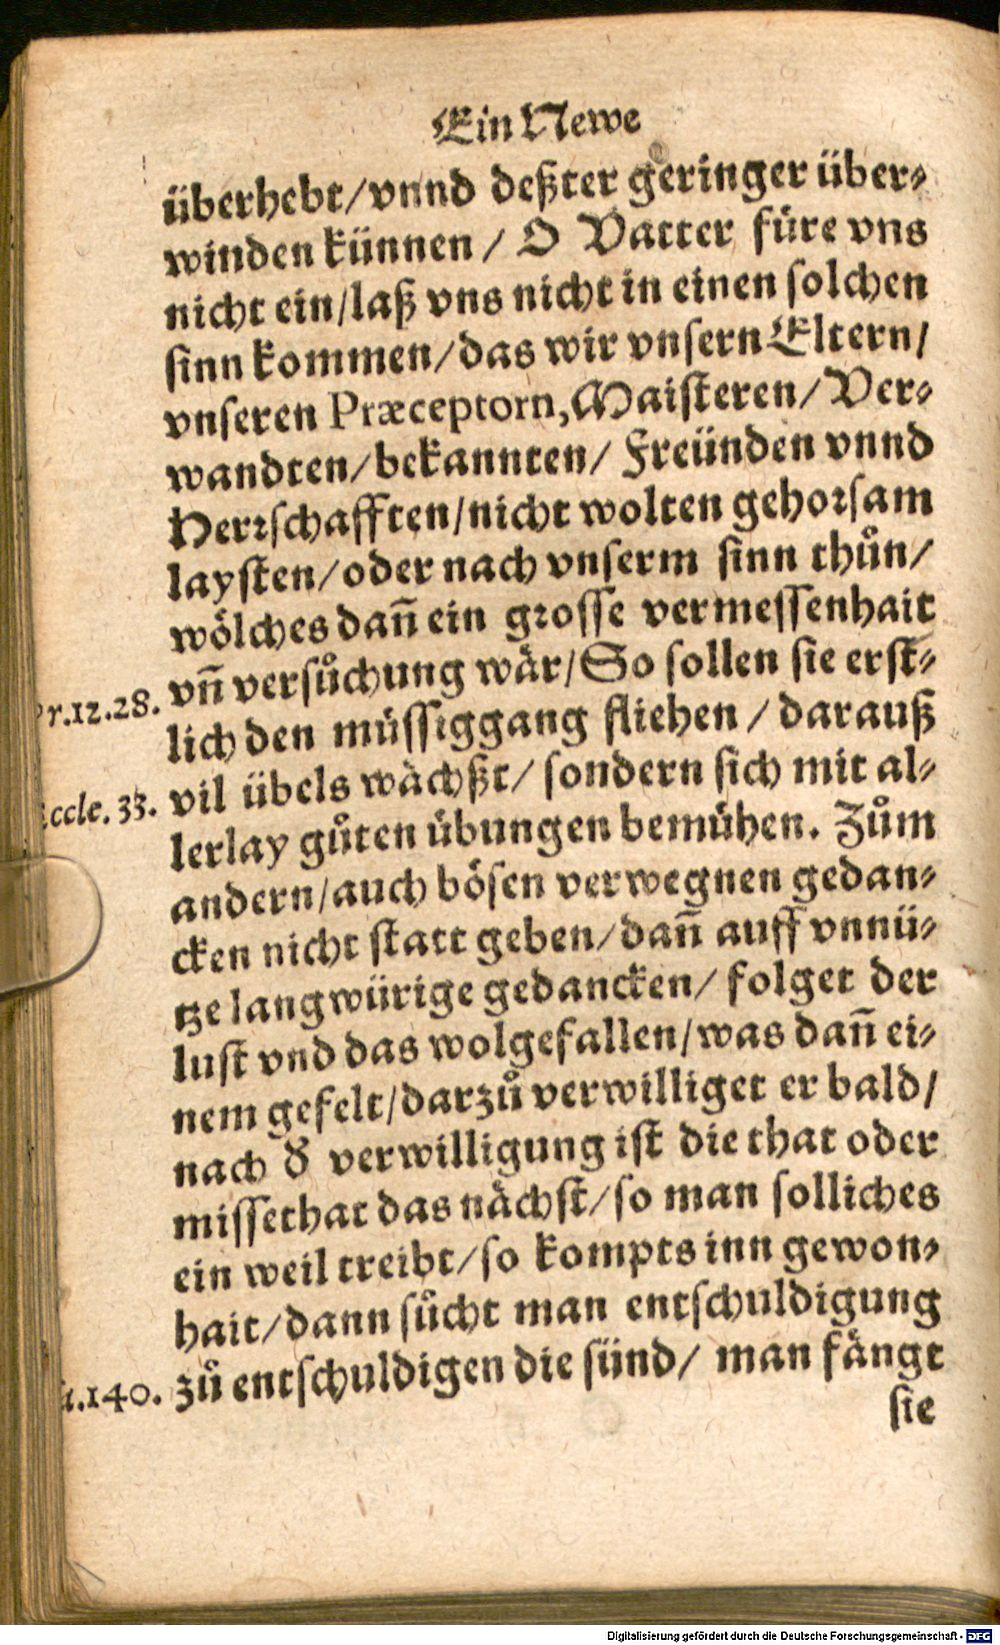 Ein Newe
überhebt/vnnd deßter geringer über⸗
winden künnen / O Vatter füre vns
nicht ein/laß vns nicht in einen solchen
sinn kommen/das wir vnsern Eltern/
vnseren Præceptorn, Maisteren/Ver⸗
wandten/bekannten/ Freünden vnnd
Herrschafften/nicht wolten gehorsam
laysten/oder nach vnserm sinn thůn/
wölches dañ ein grosse vermessenhait
vñ versůchung wär/So sollen sie erst⸗
r.12.28.
lich den müssiggang fliehen / darauß
vil übels wächßt/ sondern sich mit al⸗
ccle. 33.
lerlay gůten übungen bemühen. Zům
andern/auch bösen verwegnen gedan⸗
cken nicht statt geben/dañ auff vnnü⸗
tze langwürige gedancken/ folget der
lust vnd das wolgefallen/was dañ ei⸗
nem gefelt/darzů verwilliget er bald/
nach ð verwilligung ist die that oder
missethat das nächst/so man solliches
ein weil treibt/so kompts inn gewon⸗
hait/dann sůcht man entschuldigung
zů entschuldigen die sünd/ man fängt
.140.
sie
Digitalisierung gefördert durch die Deutsche Forschungsgemeinschaft - DFG